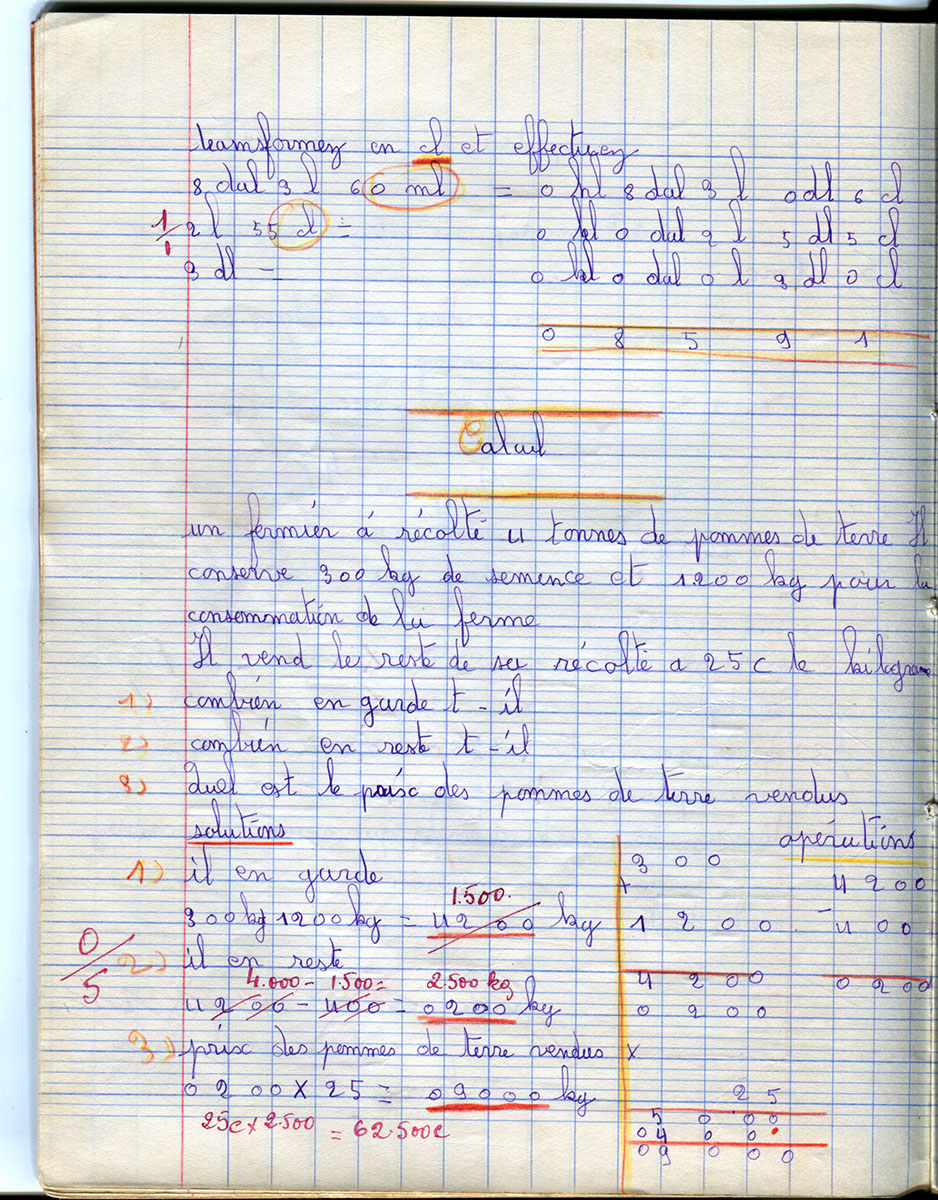 transformez en cl et effectuez
8 dal 3 l 60 ml = 0 hl 8 dal 3 l 0 dl 6 cl
1/1
2 l 55 cl = 0 hl 0 dal 2 l 5 dl 5 cl
3 dl - 0 hl 0 dal 0 l 3 dl 0 cl
0 8 5 9 1
Calcul
un fermiér á récolté 4 tonnes de pommes de terre Il
conserve 300 kg de semence et 1200 kg pour la
consommatión de la ferme
Il vend le reste de sa récolté a 25c le kilogram
1) combién en garde t-íl
2) combién en reste t-íl
3) Quel est le príx des pommes de terre vendus
solutíons opérations
1) il en garde
300 kg 1200 kg = 4200 kg
1.500.
0/5
2) il en reste
4.000 - 1.500 = 2.500 kg
4200 - 400 = 0200 kg
3) príx des pommes de terre vendus
0 200 x 25 = 09000 kg
25c x 2.500 = 62.500c
3 0 0
+
1 2 0 0
4 2 0 0
0 2 0 0
x
2 5
5 0 0 0
0 4 0 0 .
0 9 0 0 0
4 2 0 0
- 4 0 0
0 2 0 0